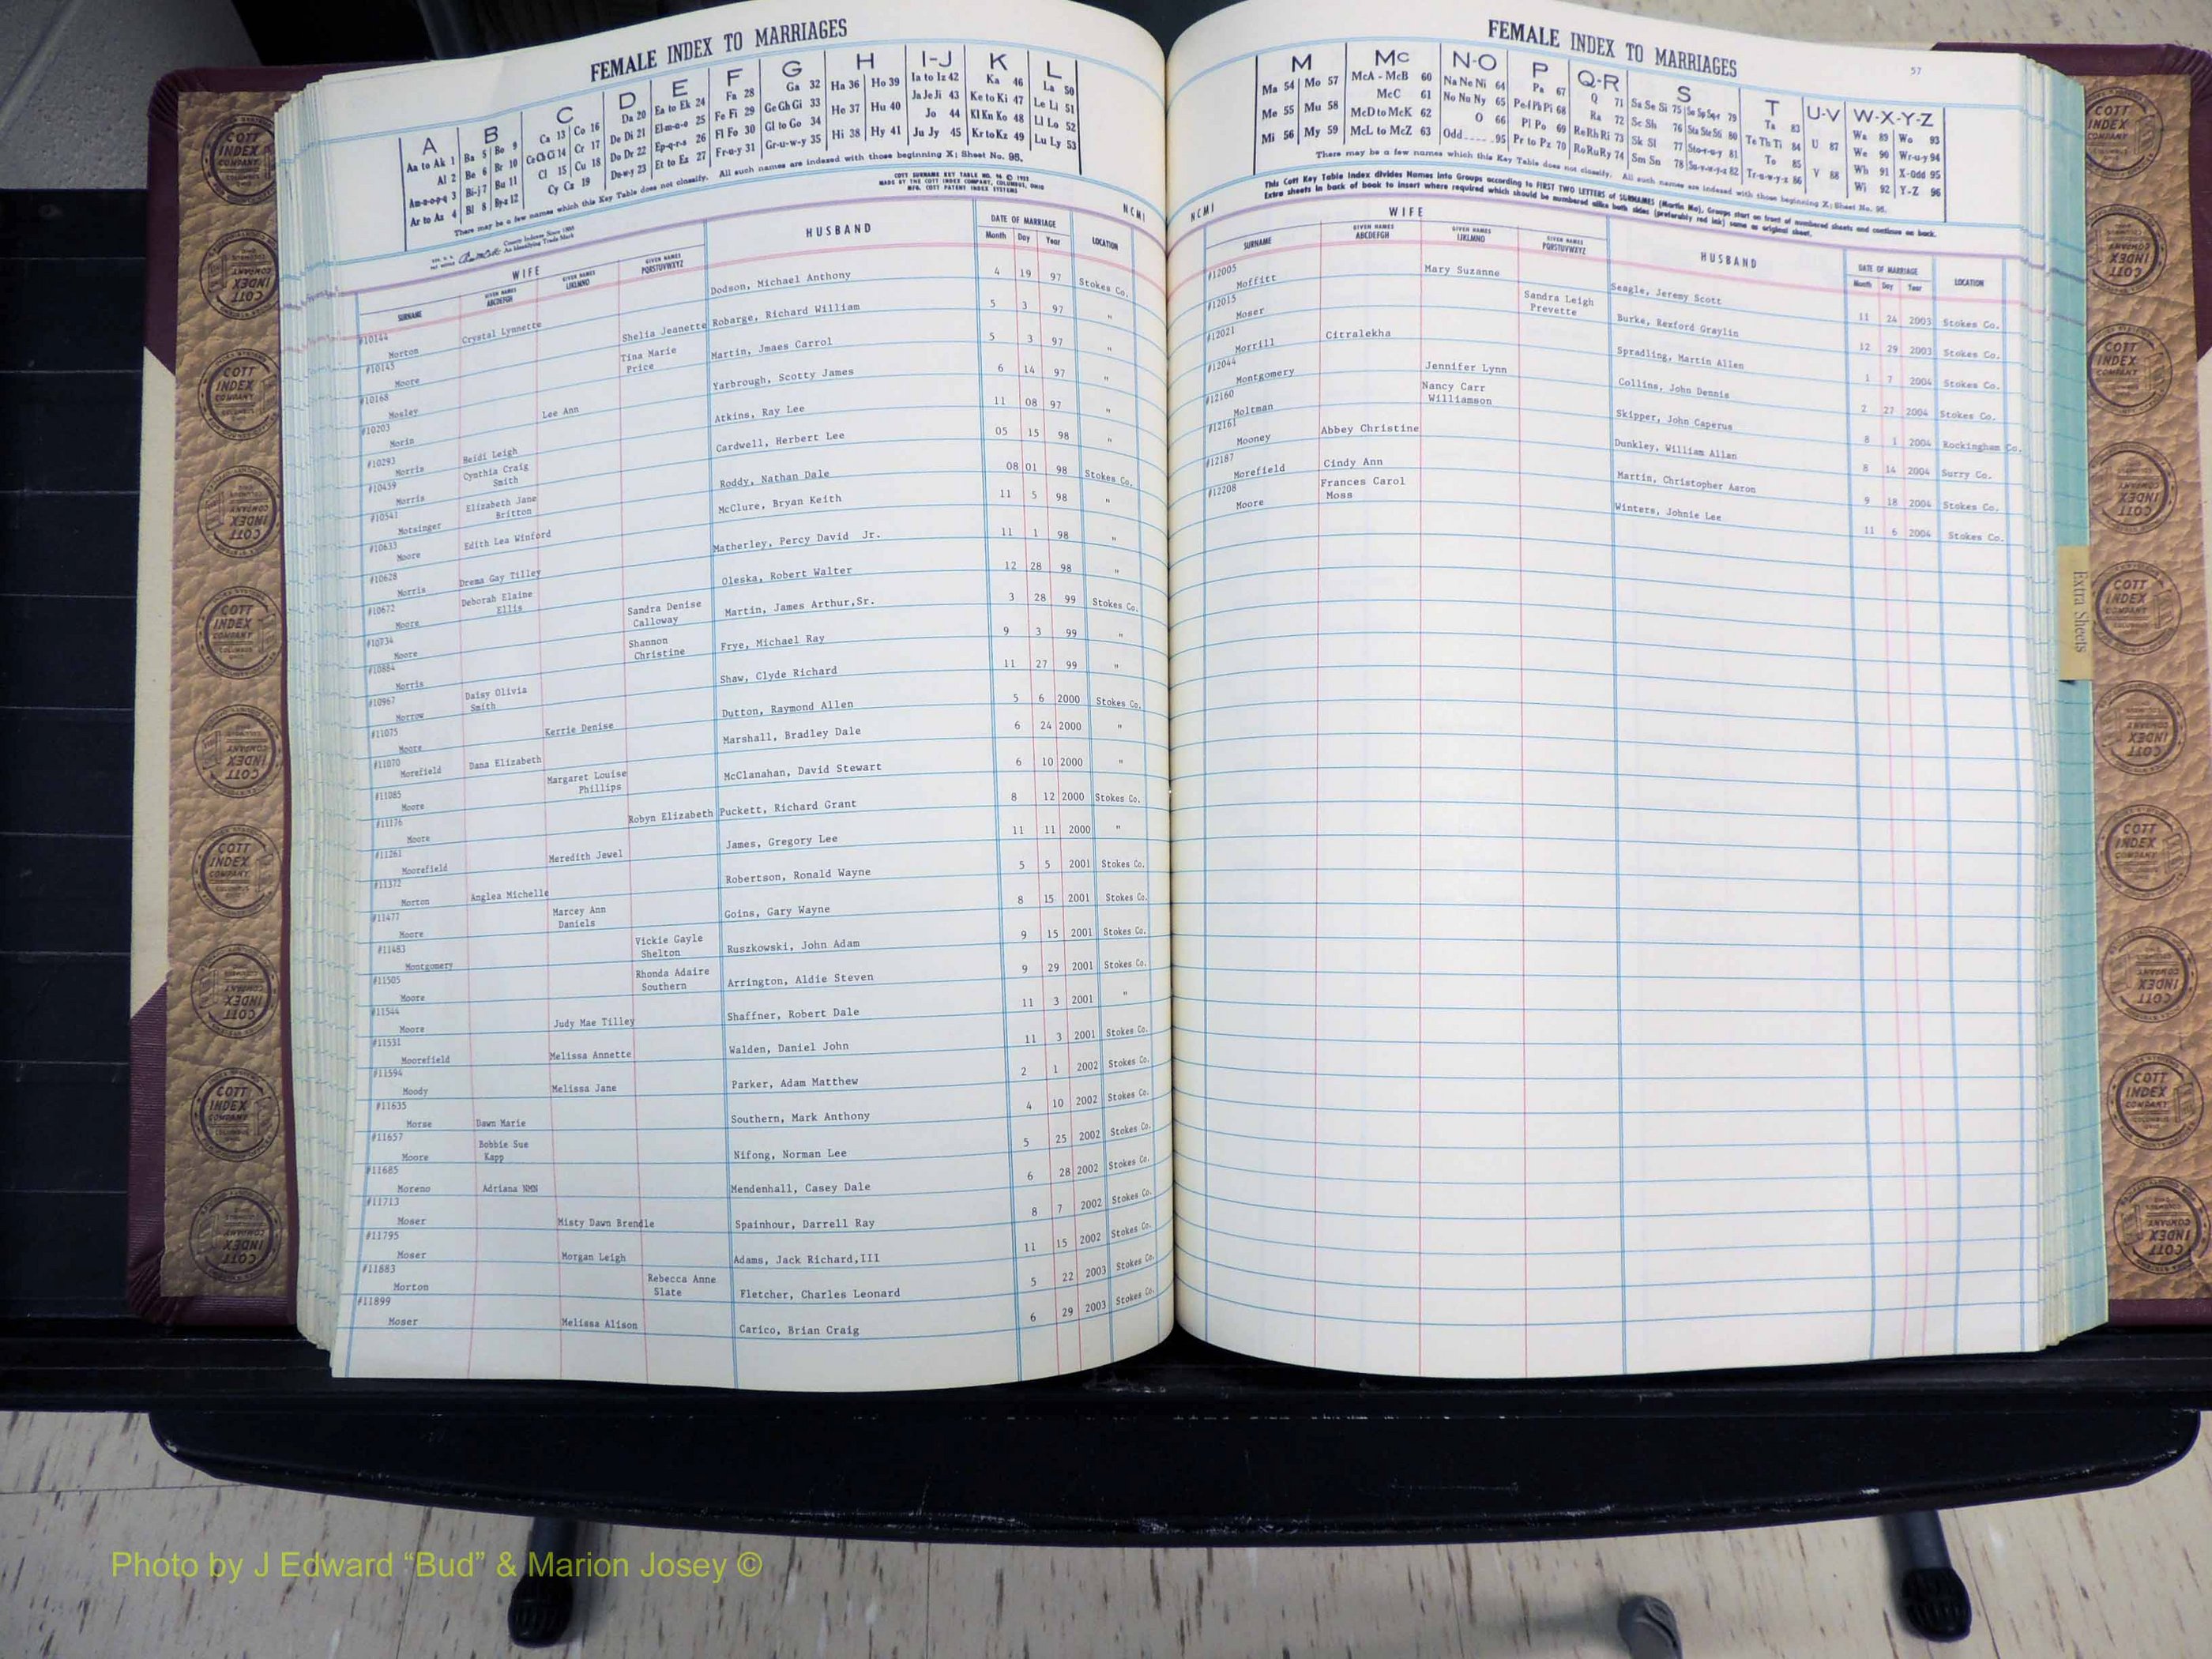 FEMALE INDEX TO MARRIAGES
A B C D E F G H I-J K L
Aa to Ak 1 Ba 5 Bo 9 Ca 13 Co 16 Da 20 Ea to Ek 24 Fa 28 Ga 32 Ha 36 Ho 39 Ia to Iz 42 Ka 46 La 50
Al 2 Be 6 Br 10 Ce Ch Ci 14 Cr 17 De Di 21 El-m-n-o 25 Fe Fi 29 Ge Gh Gi 33 He 37 Hu 40 Ja Je Ji 43 Ke to Ki 47 Le Li 51
Am-n-o-p-q 3 Bi-j 7 Bu 11 Cl 15 Cu 18 Do Dr 22 Ep-q-r-s 26 Fl Fo 30 Gl to Go 34 Hi 38 Hy 41 Jo 44 Kl Kn Ko 48 Ll Lo 52
Ar to Az 4 Bl 8 By-z 12 Cy Cz 19 Du-w-y 23 Et to Ez 27 Fr-u-y 31 Gr-u-w-y 35 Ju Jy 45 Kr to Kz 49 Lu Ly 53
There may be a few names which this Key Table does not classify. All such names are indexed with those beginning X; Sheet No. 95.
COTT SURNAME KEY TABLE NO. 96 © 1952
MADE BY THE COTT INDEX COMPANY, COLUMBUS, OHIO
MFG. COTT PATENT INDEX SYSTEMS
County Indexes Since 1888
An Identifying Trade Mark
NCMI
WIFE HUSBAND DATE OF MARRIAGE LOCATION
SURNAME GIVEN NAMES ABCDEFGH GIVEN NAMES IJKLMNO GIVEN NAMES PQRSTUVWXYZ Month Day Year
#10144
Morton Crystal Lynnette Dodson, Michael Anthony 4 19 97 Stokes Co.
#10145
Moore Shelia Jeanette Robarge, Richard William 5 3 97 "
#10168
Mosley Tina Marie Price Martin, Jmaes Carrol 5 3 97 "
#10203
Morin Lee Ann Yarbrough, Scotty James 6 14 97 "
#10293
Morris Heidi Leigh Atkins, Ray Lee 11 08 97 "
#10459
Morris Cynthia Craig Smith Cardwell, Herbert Lee 05 15 98 "
#10541
Motsinger Elizabeth Jane Britton Roddy, Nathan Dale 08 01 98 Stokes Co.
#10633
Moore Edith Lea Winford McClure, Bryan Keith 11 5 98 "
#10628
Morris Drema Gay Tilley Matherley, Percy David Jr. 11 1 98 "
#10672
Moore Deborah Elaine Ellis Oleska, Robert Walter 12 28 98 "
#10734
Moore Sandra Denise Calloway Martin, James Arthur,Sr. 3 28 99 Stokes Co.
#10884
Morris Shannon Christine Frye, Michael Ray 9 3 99 "
#10967
Morrow Daisy Olivia Smith Shaw, Clyde Richard 11 27 99 "
#11075
Moore Kerrie Denise Dutton, Raymond Allen 5 6 2000 Stokes Co.
#11070
Morefield Dana Elizabeth Marshall, Bradley Dale 6 24 2000 "
#11085
Moore Margaret Louise Phillips McClanahan, David Stewart 6 10 2000 "
#11176
Moore Robyn Elizabeth Puckett, Richard Grant 8 12 2000 Stokes Co.
#11261
Moorefield Meredith Jewel James, Gregory Lee 11 11 2000 "
#11372
Morton Anglea Michelle Robertson, Ronald Wayne 5 5 2001 Stokes Co.
#11477
Moore Marcey Ann Daniels Goins, Gary Wayne 8 15 2001 Stokes Co.
#11483
Montgomery Vickie Gayle Shelton Ruszkowski, John Adam 9 15 2001 Stokes Co.
#11505
Moore Rhonda Adaire Southern Arrington, Aldie Steven 9 29 2001 Stokes Co.
#11544
Moore Judy Mae Tilley Shaffner, Robert Dale 11 3 2001 "
#11531
Moorefield Melissa Annette Walden, Daniel John 11 3 2001 Stokes Co.
#11594
Moody Melissa Jane Parker, Adam Matthew 2 1 2002 Stokes Co.
#11635
Morse Dawn Marie Southern, Mark Anthony 4 10 2002 Stokes Co.
#11657
Moore Bobbie Sue Kapp Nifong, Norman Lee 5 25 2002 Stokes Co.
#11685
Moreno Adriana NMN Mendenhall, Casey Dale 6 28 2002 Stokes Co.
#11713
Moser Misty Dawn Brendle Spainhour, Darrell Ray 8 7 2002 Stokes Co.
#11795
Moser Morgan Leigh Adams, Jack Richard,III 11 15 2002 Stokes Co.
#11883
Morton Rebecca Anne Slate Fletcher, Charles Leonard 5 22 2003 Stokes Co.
#11899
Moser Melissa Alison Carico, Brian Craig 6 29 2003 Stokes Co.
FEMALE INDEX TO MARRIAGES
57
M Mc N-O P Q-R S T U-V W-X-Y-Z
Ma 54 Mo 57 McA - McB 60 Na Ne Ni 64 Pa 67 Q 71 Sa Se Si 75 So Sp Sq-r 79 Ta 83 U 87 Wa 89 Wo 93
Me 55 Mu 58 McC 61 No Nu Ny 65 Pe-f Ph Pi 68 Ra 72 Sc Sh 76 Sta Ste Sti 80 Te Th Ti 84 V 88 We 90 Wr-u-y 94
Mi 56 My 59 McD to McK 62 O 66 Pl Po 69 Re Rh Ri 73 Sk Sl 77 Sto-r-u-y 81 To 85 Wh 91 X-Odd 95
McL to McZ 63 Odd 95 Pr to Pz 70 Ro Ru Ry 74 Sm Sn 78 Su-v-w-y-z 82 Tr-u-w-y-z 86 Wi 92 Y-Z 96
There may be a few names which this Key Table does not classify. All such names are indexed with those beginning X; Sheet No. 95.
This Cott Key Table Index divides Names into Groups according to FIRST TWO LETTERS of SURNAMES (Martin Ma), Groups start on front of numbered sheets and continue on back.
Extra sheets in back of book to insert where required which should be numbered alike both sides (preferably red ink) same as original sheet.
NCMI
WIFE HUSBAND DATE OF MARRIAGE LOCATION
SURNAME GIVEN NAMES ABCDEFGH GIVEN NAMES IJKLMNO GIVEN NAMES PQRSTUVWXYZ Month Day Year
#12005
Moffitt Mary Suzanne Seagle, Jeremy Scott 11 24 2003 Stokes Co.
#12015
Moser Sandra Leigh Prevette Burke, Rexford Graylin 12 29 2003 Stokes Co.
#12021
Morrill Citralekha Spradling, Martin Allen 1 7 2004 Stokes Co.
#12044
Montgomery Jennifer Lynn Collins, John Dennis 2 27 2004 Stokes Co.
#12160
Moltman Nancy Carr Williamson Skipper, John Caperus 8 1 2004 Rockingham Co.
#12161
Mooney Abbey Christine Dunkley, William Allan 8 14 2004 Surry Co.
#12187
Morefield Cindy Ann Martin, Christopher Aaron 9 18 2004 Stokes Co.
#12208
Moore Frances Carol Moss Winters, Johnie Lee 11 6 2004 Stokes Co.
Extra Sheets
COTT INDEX COMPANY COLUMBUS OHIO
Photo by J Edward “Bud” & Marion Josey ©